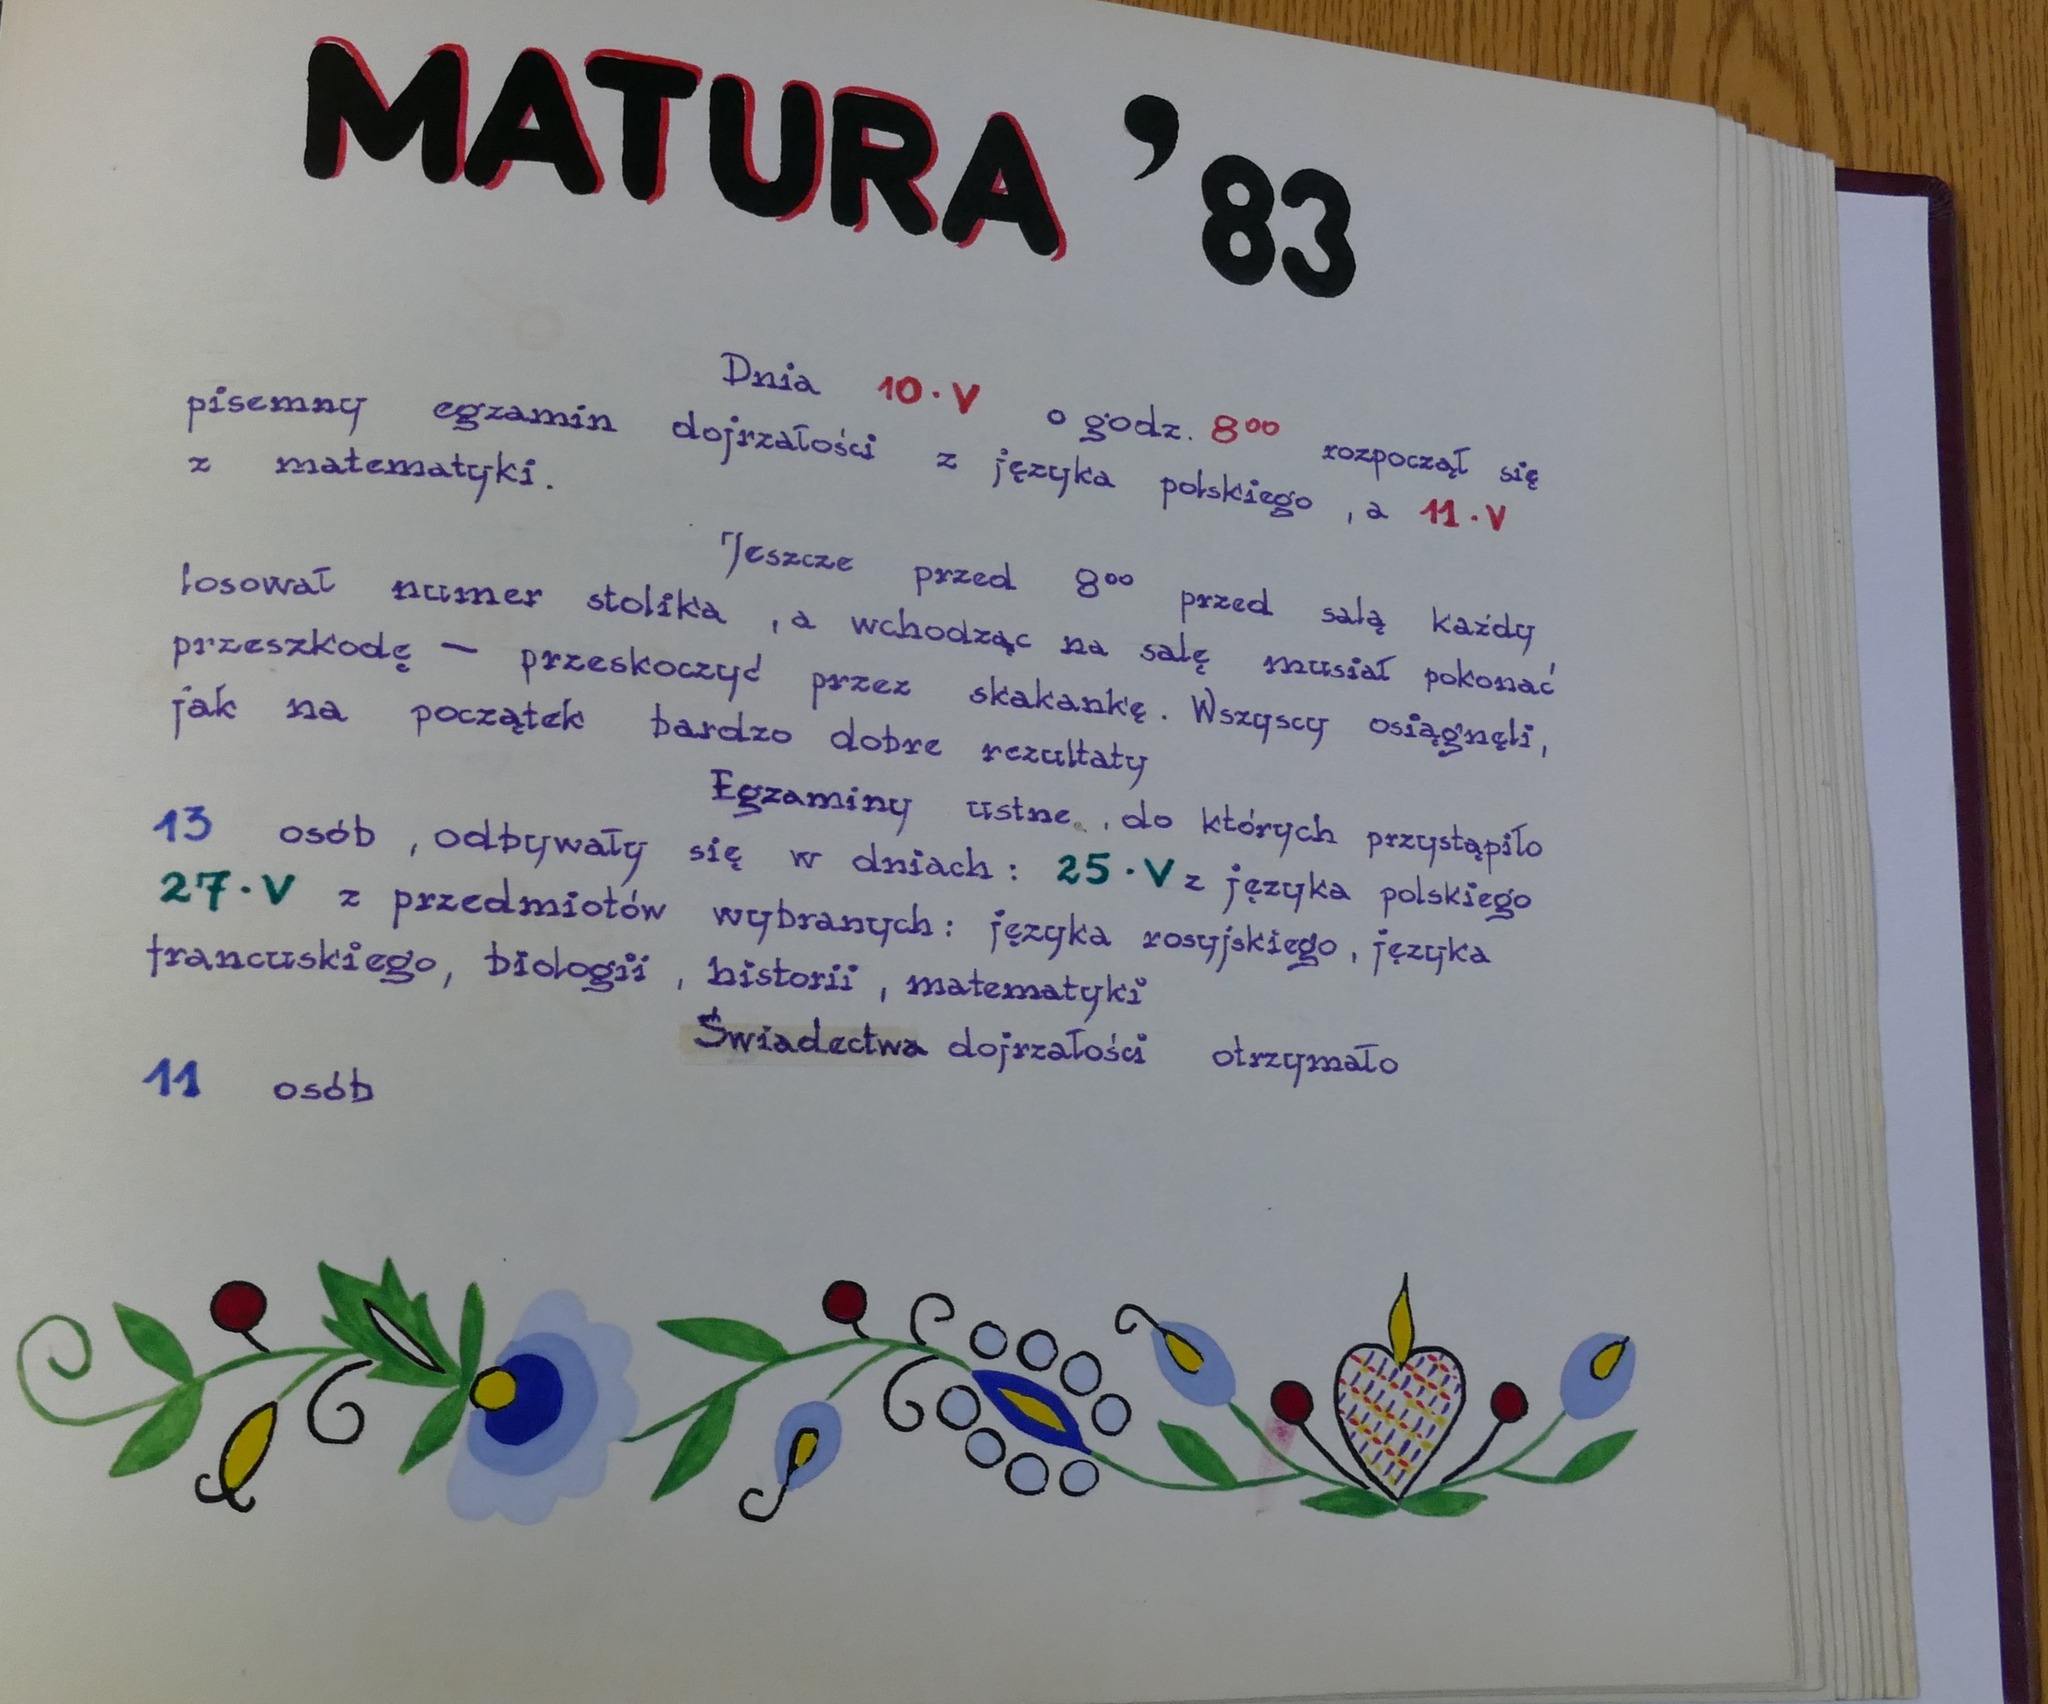 MATURA '83
Dnia 10.V o godz. 8⁰⁰ rozpoczął się
pisemny egzamin dojrzałości z języka polskiego, a 11.V
z matematyki.
Jeszcze przed 8⁰⁰ przed salą każdy
losował numer stolika, a wchodząc na salę musiał pokonać
przeszkodę — przeskoczyć przez skakankę. Wszyscy osiągnęli,
jak na początek bardzo dobre rezultaty
Egzaminy ustne, do których przystąpiło
13 osób, odbywały się w dniach: 25.V z języka polskiego
27.V z przedmiotów wybranych: języka rosyjskiego, języka
francuskiego, biologii, historii, matematyki
Świadectwa dojrzałości otrzymało
11 osób